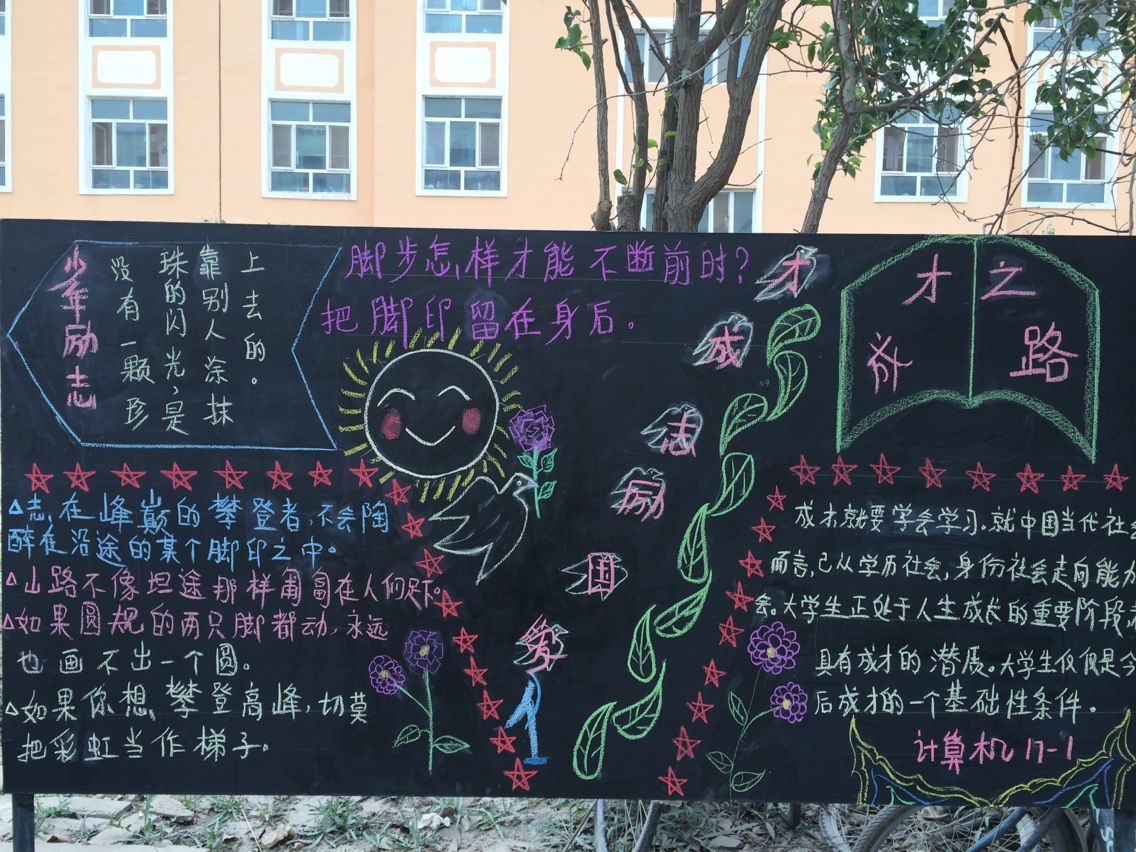 少年励志
没有一颗珍
珠的闪光，是
靠别人涂抹
上去的。
脚步怎样才能不断前时？
把脚印留在身后。
志在峰巅的攀登者，不会陶
醉在沿途的某个脚印之中。
山路不像坦途那样匍匐在人们足下。
如果圆规的两只脚都动，永远
也画不出一个圆。
如果你想攀登高峰，切莫
把彩虹当作梯子。
爱
国
励
志
成
才
才之
路
成才就要学会学习。就中国当代社会
而言，已从学历社会，身份社会走向能力
会。大学生正处于人生成长的重要阶段
具有成才的潜质。大学生仅仅是今
后成才的一个基础性条件。
计算机17-1